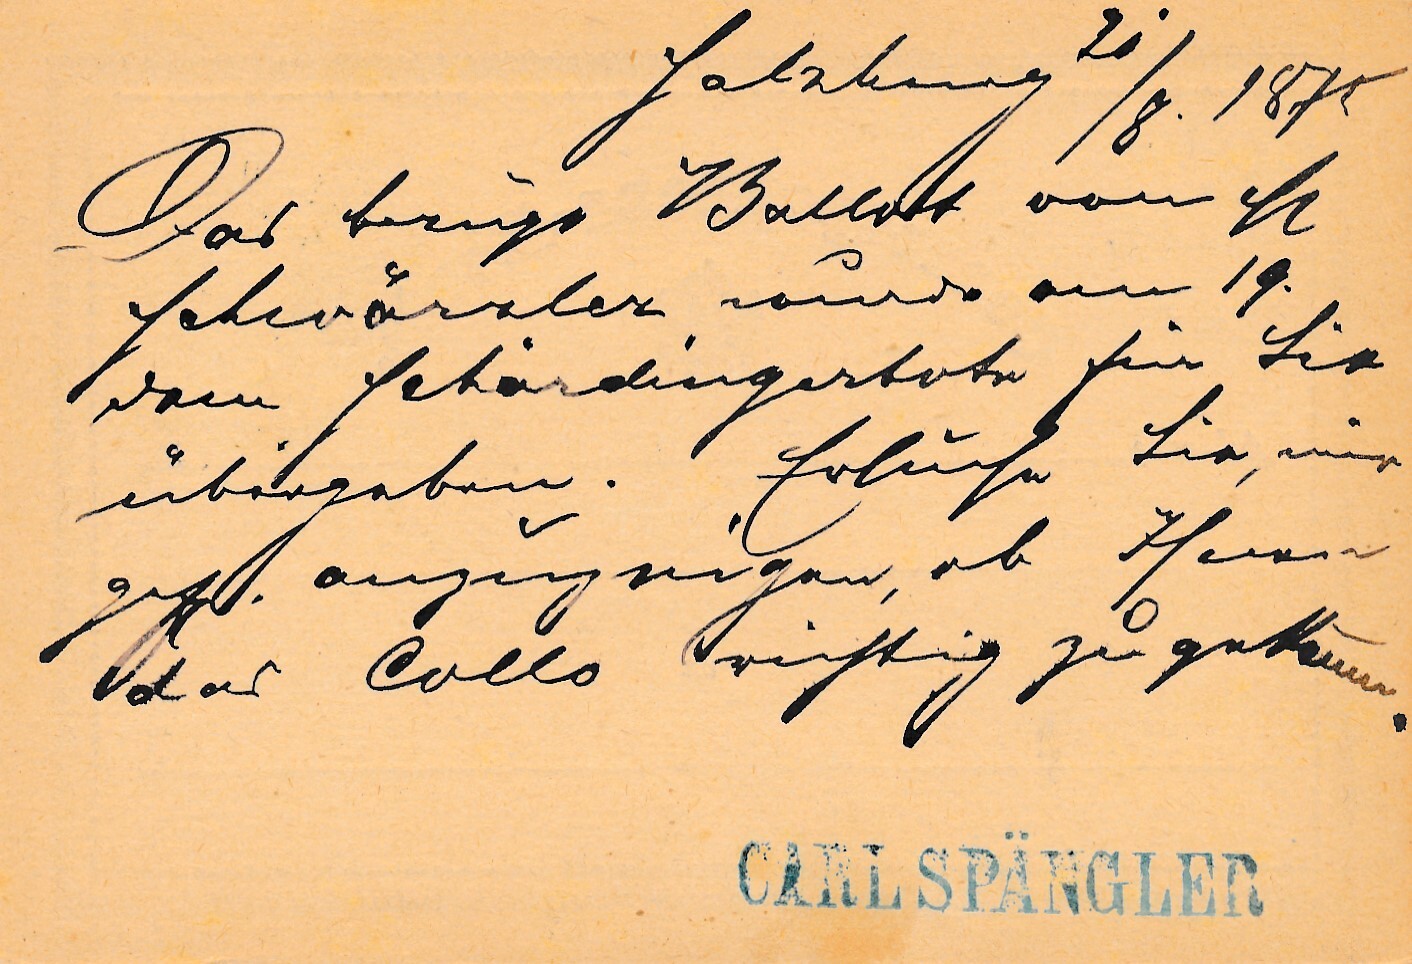 Salzburg 21/8. 1875
Das bewußte Ballot von H
Schwärzler wurde am 19.
dem Schärdingerbote für Sie
übergeben. Ersuche Sie, mir
gefl. anzuzeigen, ob Ihnen
das Collo richtig zugekomm.
CARL SPÄNGLER